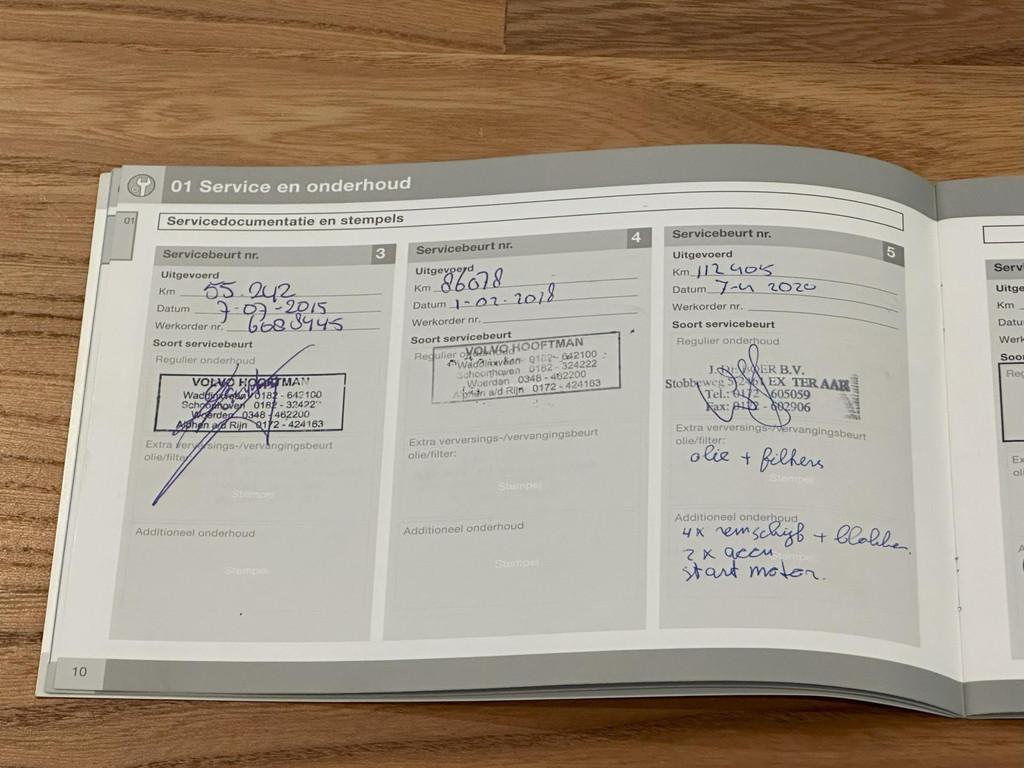 01 Service en onderhoud
01
Servicedocumentatie en stempels
Servicebeurt nr. 3
Uitgevoerd
Km 55.242
Datum 7-07-2015
Werkorder nr. 6688445
Soort servicebeurt
Regulier onderhoud
VOLVO HOOFTMAN
Waddinxveen 0182 - 642100
Schoonhoven 0182 - 324222
Woerden 0348 - 462200
Alphen a/d Rijn 0172 - 424163
Extra verversings-/vervangingsbeurt
olie/filter:
Stempel
Additioneel onderhoud
Stempel
Servicebeurt nr. 4
Uitgevoerd
Km 86078
Datum 1-02-2018
Werkorder nr.
Soort servicebeurt
Regulier onderhoud
VOLVO HOOFTMAN
Waddinxveen 0182 - 642100
Schoonhoven 0182 - 324222
Woerden 0348 - 462200
Alphen a/d Rijn 0172 - 424163
Extra verversings-/vervangingsbeurt
olie/filter:
Stempel
Additioneel onderhoud
Stempel
Servicebeurt nr. 5
Uitgevoerd
Km 112405
Datum 7-4 2020
Werkorder nr.
Soort servicebeurt
Regulier onderhoud
B.V.
Stobbeweg EX TER AAR
Tel.: 0172 - 605059
Fax: 0172 - 602906
Extra verversings-/vervangingsbeurt
olie/filter:
olie + filters
Stempel
Additioneel onderhoud
4x remschijf + blokken
2 x accu
Stempel
start motor.
10